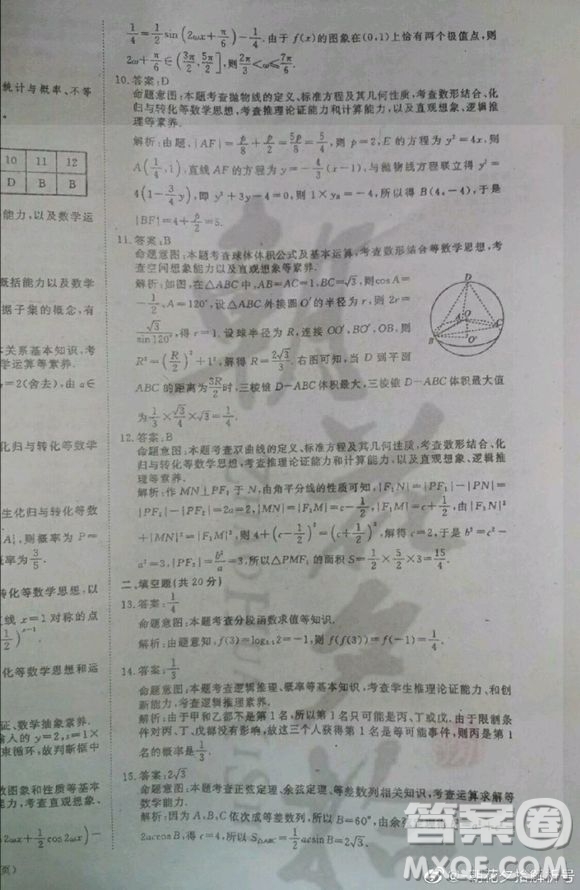 统计与概率、不等
10 11 12
D B B
能力,以及数学运
概括能力以及数学
据子集的概念,有
本关系基本知识,考
学运算等素养.
y=2(舍去),由 a∈
化归与转化等数学
生化归与转化等数
则概率为 P=
3/5.
转化等数学思想,以
直线 x=1 对称的点
化等数学思想和运
证、数学抽象素养.
输入的 y=2,
束循环,故判断框中
函数图象和性质等基本
数学运算等素养.
1/4=1/2 sin(2ωx+π/6)-1/4.由于 f(x)的图象在(0,1)上恰有两个极值点,则
2ω+π/6∈(3π/2,5π/2],则2π/3<ω≤7π/6.
10.答案:D
命题意图:本题考查抛物线的定义、标准方程及其几何性质,考查数形结合、化
归与转化等数学思想,考查推理论证能力和计算能力,以及直观想象、逻辑推
理等素养.
解析:由题,|AF|=p/8+p/2=5p/8=5/4,则 p=2,E 的方程为 y²=4x,则
A(1/4,1),直线 AF 的方程为 y=-4/3(x-1),与抛物线方程联立得 y²=
4(1-3/4y),即 y²+3y-4=0,则 1×y_B=-4,所以得 B(4,-4),于是
|BF|=4+p/2=5.
11.答案:B
命题意图:本题考查球体体积公式及基本运算,考查数形结合等数学思想,考
查空间想象能力以及直观想象等素养.
解析:如图,在△ABC 中,AB=AC=1,BC=√3,则cosA=
-1/2,A=120°,设△ABC 外接圆 O′的半径为 r,则 2r=
√3/sin120°,得 r=1.设球半径为 R,连接 OO′,BO′,BO,则
R²=(R/2)²+1²,解得 R=2√3/3.右图可知,当 D 到平面
ABC 的距离为3R/2时,三棱锥 D-ABC 体积最大,三棱锥 D-ABC 体积最大值
为1/3×√3/4×√3=1/4.
D
O
A
C
B
O′
12.答案:B
命题意图:本题考查双曲线的定义、标准方程及其几何性质,考查数形结合、化
归与转化等数学思想,考查推理论证能力和计算能力,以及直观想象、逻辑推
理等素养.
解析:作 MN⊥PF₁于 N,由角平分线的性质可知,|F₁N|=|PF₁|-|PN|=
|PF₁|-|PF₂|=2a=2,|MN|=|MF₂|=c-1/2,|MF₁|=c+1/2,由|F₁N|²
+|MN|²=|F₁M|²,则 4+(c-1/2)²=(c+1/2)²,解得 c=2,于是 b²=c²-
a²=3,|PF₂|=b²/a=3,所以△PMF₁ 的面积 S=1/2×5/2×3=15/4.
二、填空题(共 20 分)
13.答案:1/4
命题意图:本题考查分段函数求值等知识.
解析:由题意知,f(3)=log₀.₅2=-1,则 f(f(3))=f(-1)=1/4.
14.答案:1/3
命题意图:本题考查逻辑推理、概率等基本知识,考查学生推理论证能力、和创
新能力,以及逻辑推理等素养.
解析:由于甲和乙都不是第 1 名,所以第 1 名只可能是丙、丁或戊.由于限制条
件对丙、丁、戊都没有影响,故这三个人获得第 1 名是等可能事件,则丙是第 1
名的概率是1/3.
15.答案:2√3
命题意图:本题考查正弦定理、余弦定理、等差数列相关知识,考查运算求解等
数学能力.
解析:因为 A,B,C 依次成等差数列,所以 B=60°,由余
2accosB,得 c=4,所以 S△ABC=1/2acsinB=2√3.
答案圈
MXQE.COM